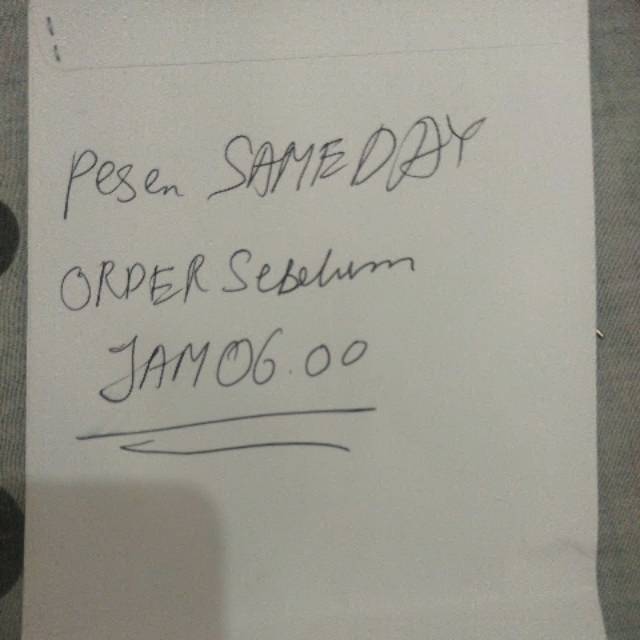 Pesen SAMEDAY
ORDER Sebelum
JAM 06.00